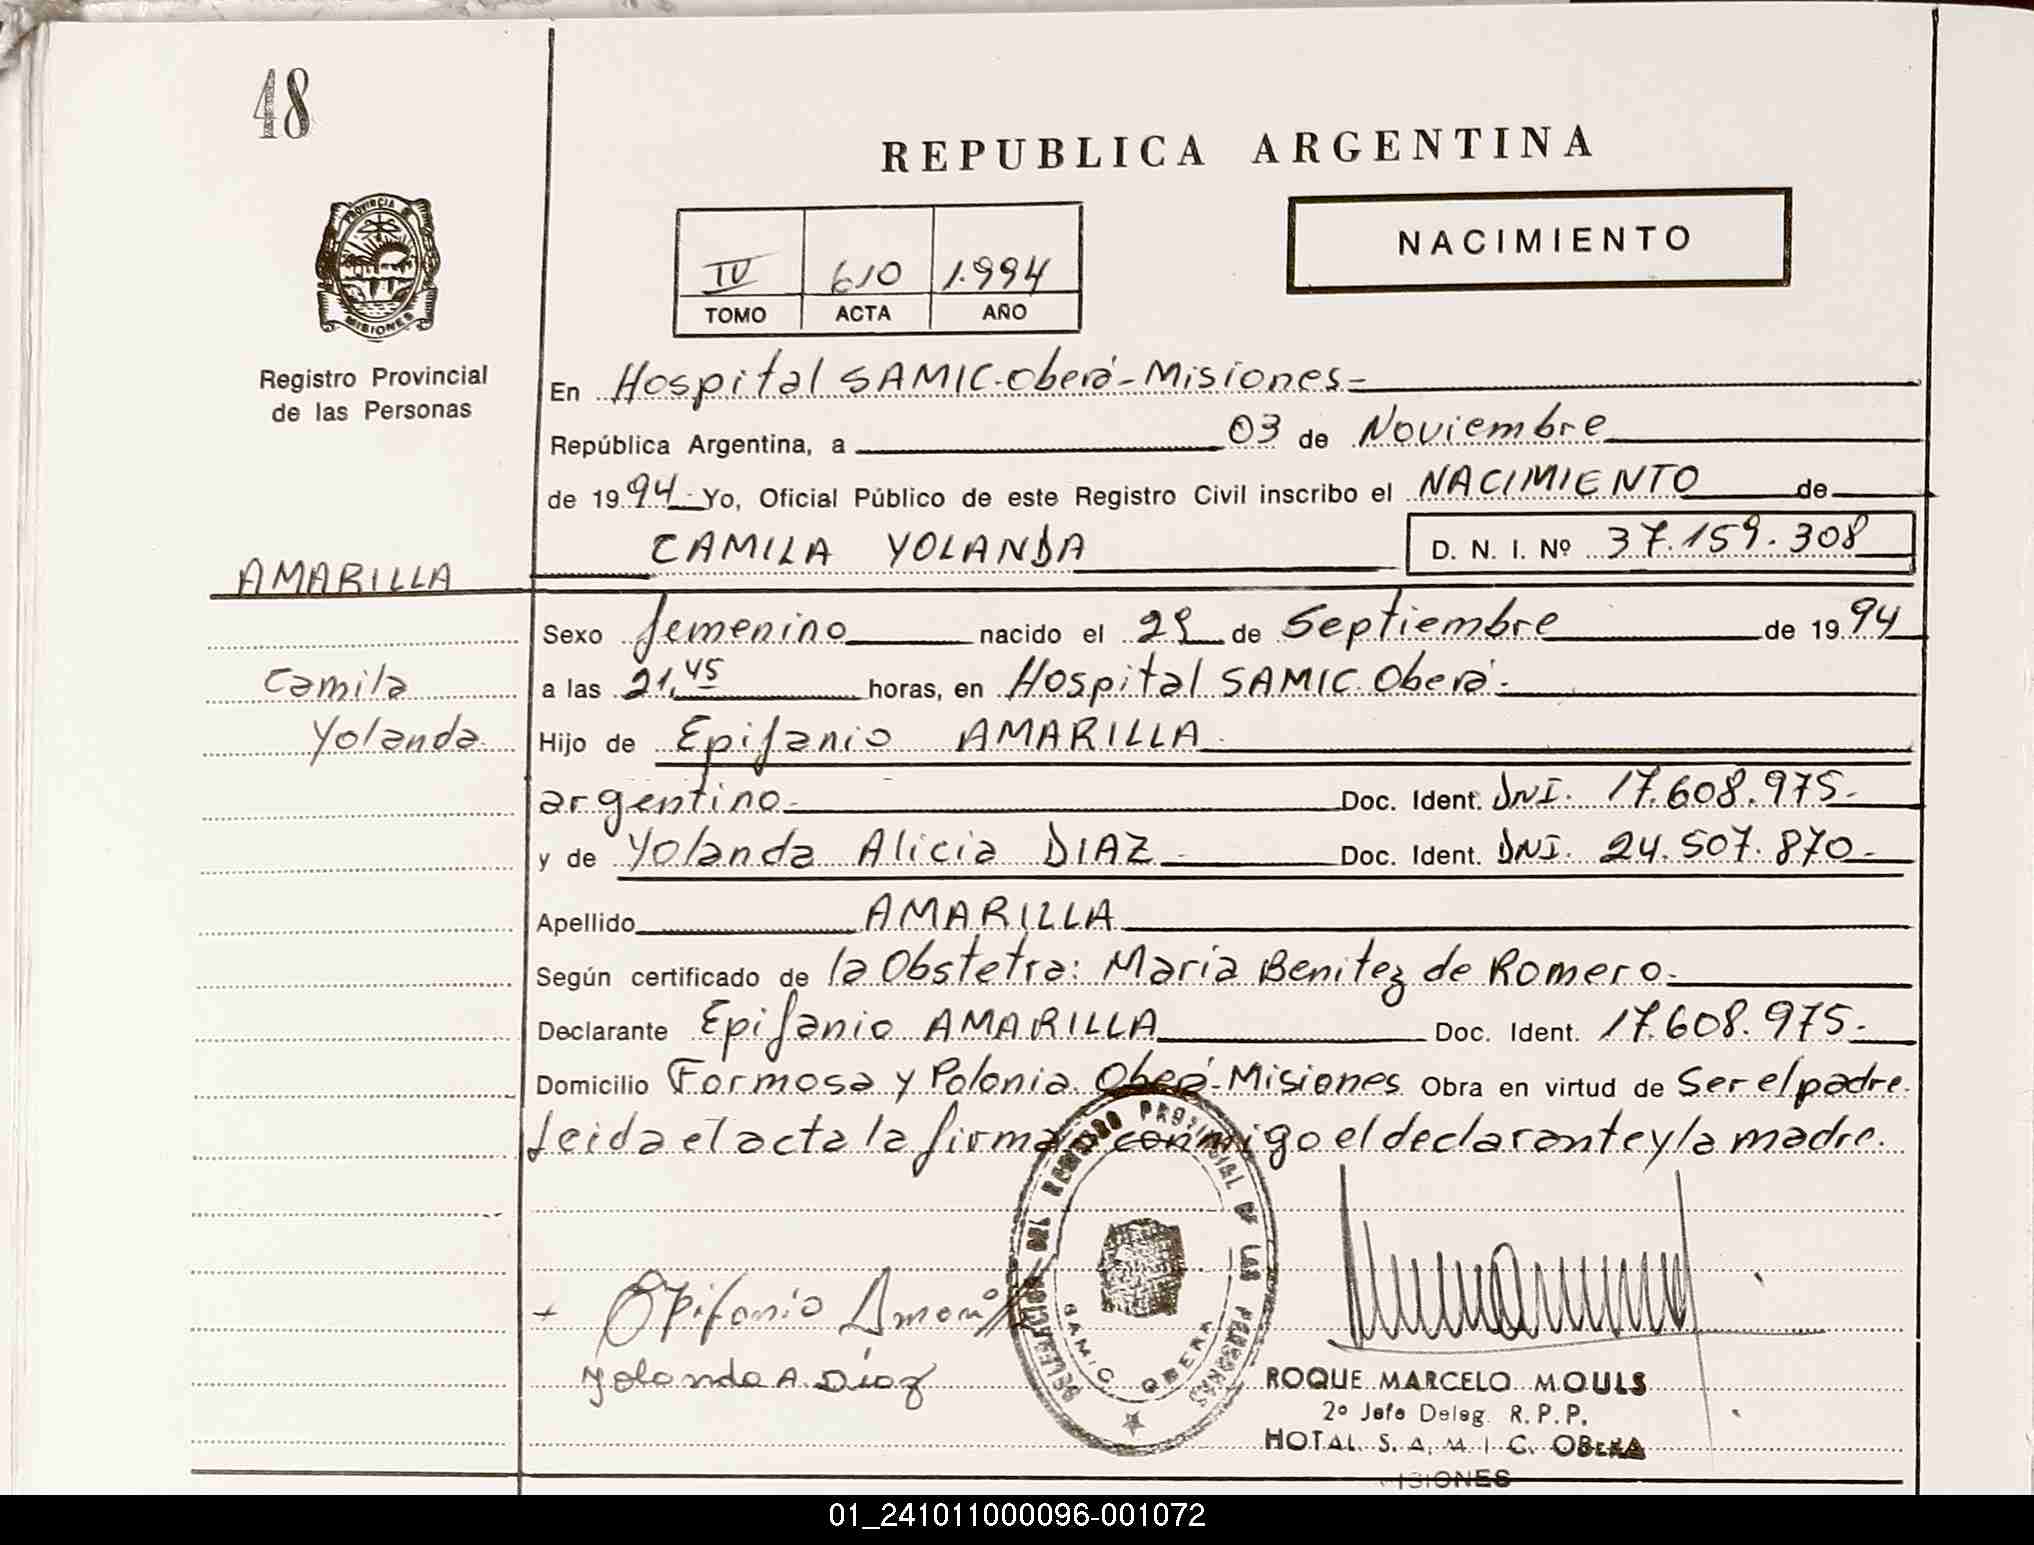 48
REPUBLICA ARGENTINA
PROVINCIA DE
MISIONES
NACIMIENTO
IV 610 1.994
TOMO ACTA AÑO
Registro Provincial
de las Personas
En Hospital SAMIC-Oberá-Misiones-
República Argentina, a 03 de Noviembre
de 1994- Yo, Oficial Público de este Registro Civil inscribo el NACIMIENTO de
CAMILA YOLANDA D. N. I. Nº 37.159.308
AMARILLA
Sexo femenino nacido el 29 de Septiembre de 1994
Camila a las 21,45 horas, en Hospital SAMIC.Oberá-
Yolanda. Hijo de Epifanio AMARILLA-
argentino- Doc. Ident. DNI. 17.608.975-
y de Yolanda Alicia DIAZ - Doc. Ident. DNI. 24.507.870-
Apellido AMARILLA
Según certificado de la Obstetra: Maria Benitez de Romero-
Declarante Epifanio AMARILLA Doc. Ident. 17.608.975-
Domicilio Formosa y Polonia. Oberá-Misiones Obra en virtud de Ser el padre.
Leida el acta la firman conmigo el declarante y la madre.
DELEGACION DEL REGISTRO PROVINCIAL DE LAS PERSONAS
SAMIC OBERA
Epifanio Amarilla
Yolanda A. Diaz
ROQUE MARCELO MOULS
2º Jefe Deleg. R.P.P.
HOTAL S. A. M. I. C. OBERA
MISIONES
01_241011000096-001072